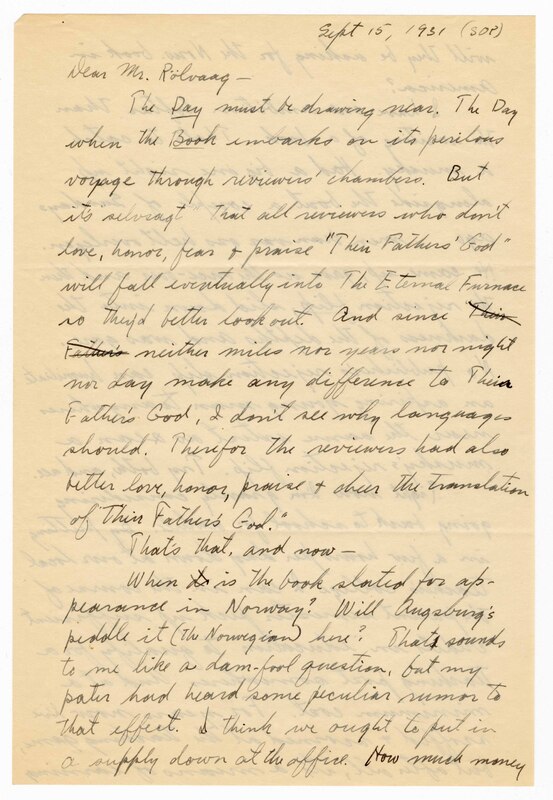 Sept 15, 1931 (SOP)
Dear Mr. Rölvaag —
The Day must be drawing near. The Day
when the Book embarks on its perilous
voyage through reviewers' chambers. But
it's selvsagt that all reviewers who don't
love, honor, fear & praise "Their Fathers' God"
will fall eventually into The Eternal Furnace
so they'd better look out. And since Their
Father's neither miles nor years nor night
nor day make any difference to Their
Father's God, I don't see why languages
should. Therefor the reviewers had also
better love, honor, praise & cheer the translation
of Their Father's God."
That's that, and now —
When is the book slated for ap-
pearance in Norway? Will Augsburg's
peddle it (the Norwegian) here? That sounds
to me like a dam-fool question, but my
pater had heard some peculiar rumor to
that effect. I think we ought to put in
a supply down at the office. How much money